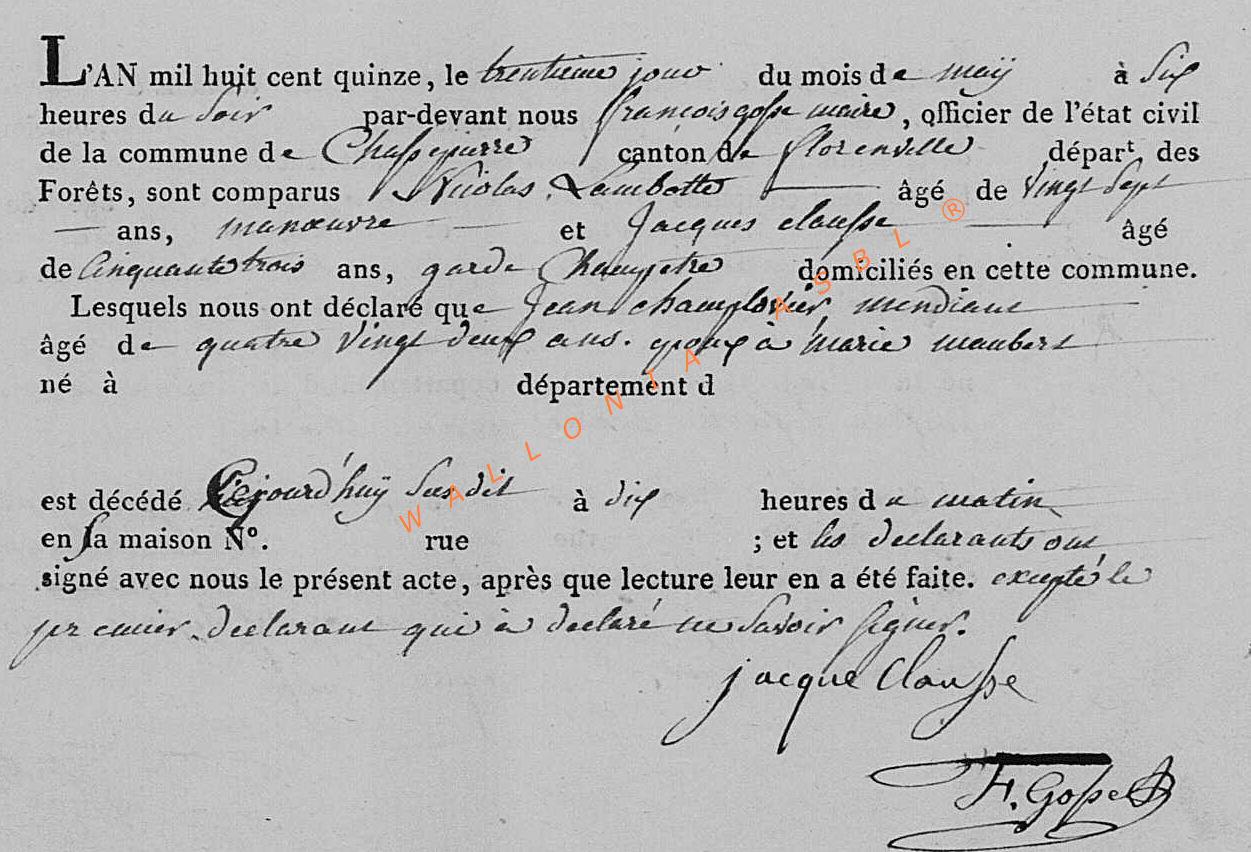 L'AN mil huit cent quinze, le trentieme jour du mois de maÿ à Six
heures du Soir par-devant nous françois gosse maire, officier de l'état civil
de la commune de Chassepierre canton de florenville départ des
Forêts, sont comparus Nicolas Lambotte âgé de Vingt Sept
ans, manœuvre et Jacques Clausse âgé
de Cinquante trois ans, garde Champetre domiciliés en cette commune.
Lesquels nous ont déclaré que Jean champlovier mendiant
âgé de quatre Vingt deux ans. epoux à marie maubert
né à département d
est décédé Cejourd'huÿ Susdit à dix heures du matin
en sa maison N°. rue ; et les declarants ont
signé avec nous le présent acte, après que lecture leur en a été faite. excepté le
premier declarant qui à declaré ne Savoir signer.
jacque Clausse
F. Gosse
WALLONIA ASBL ®